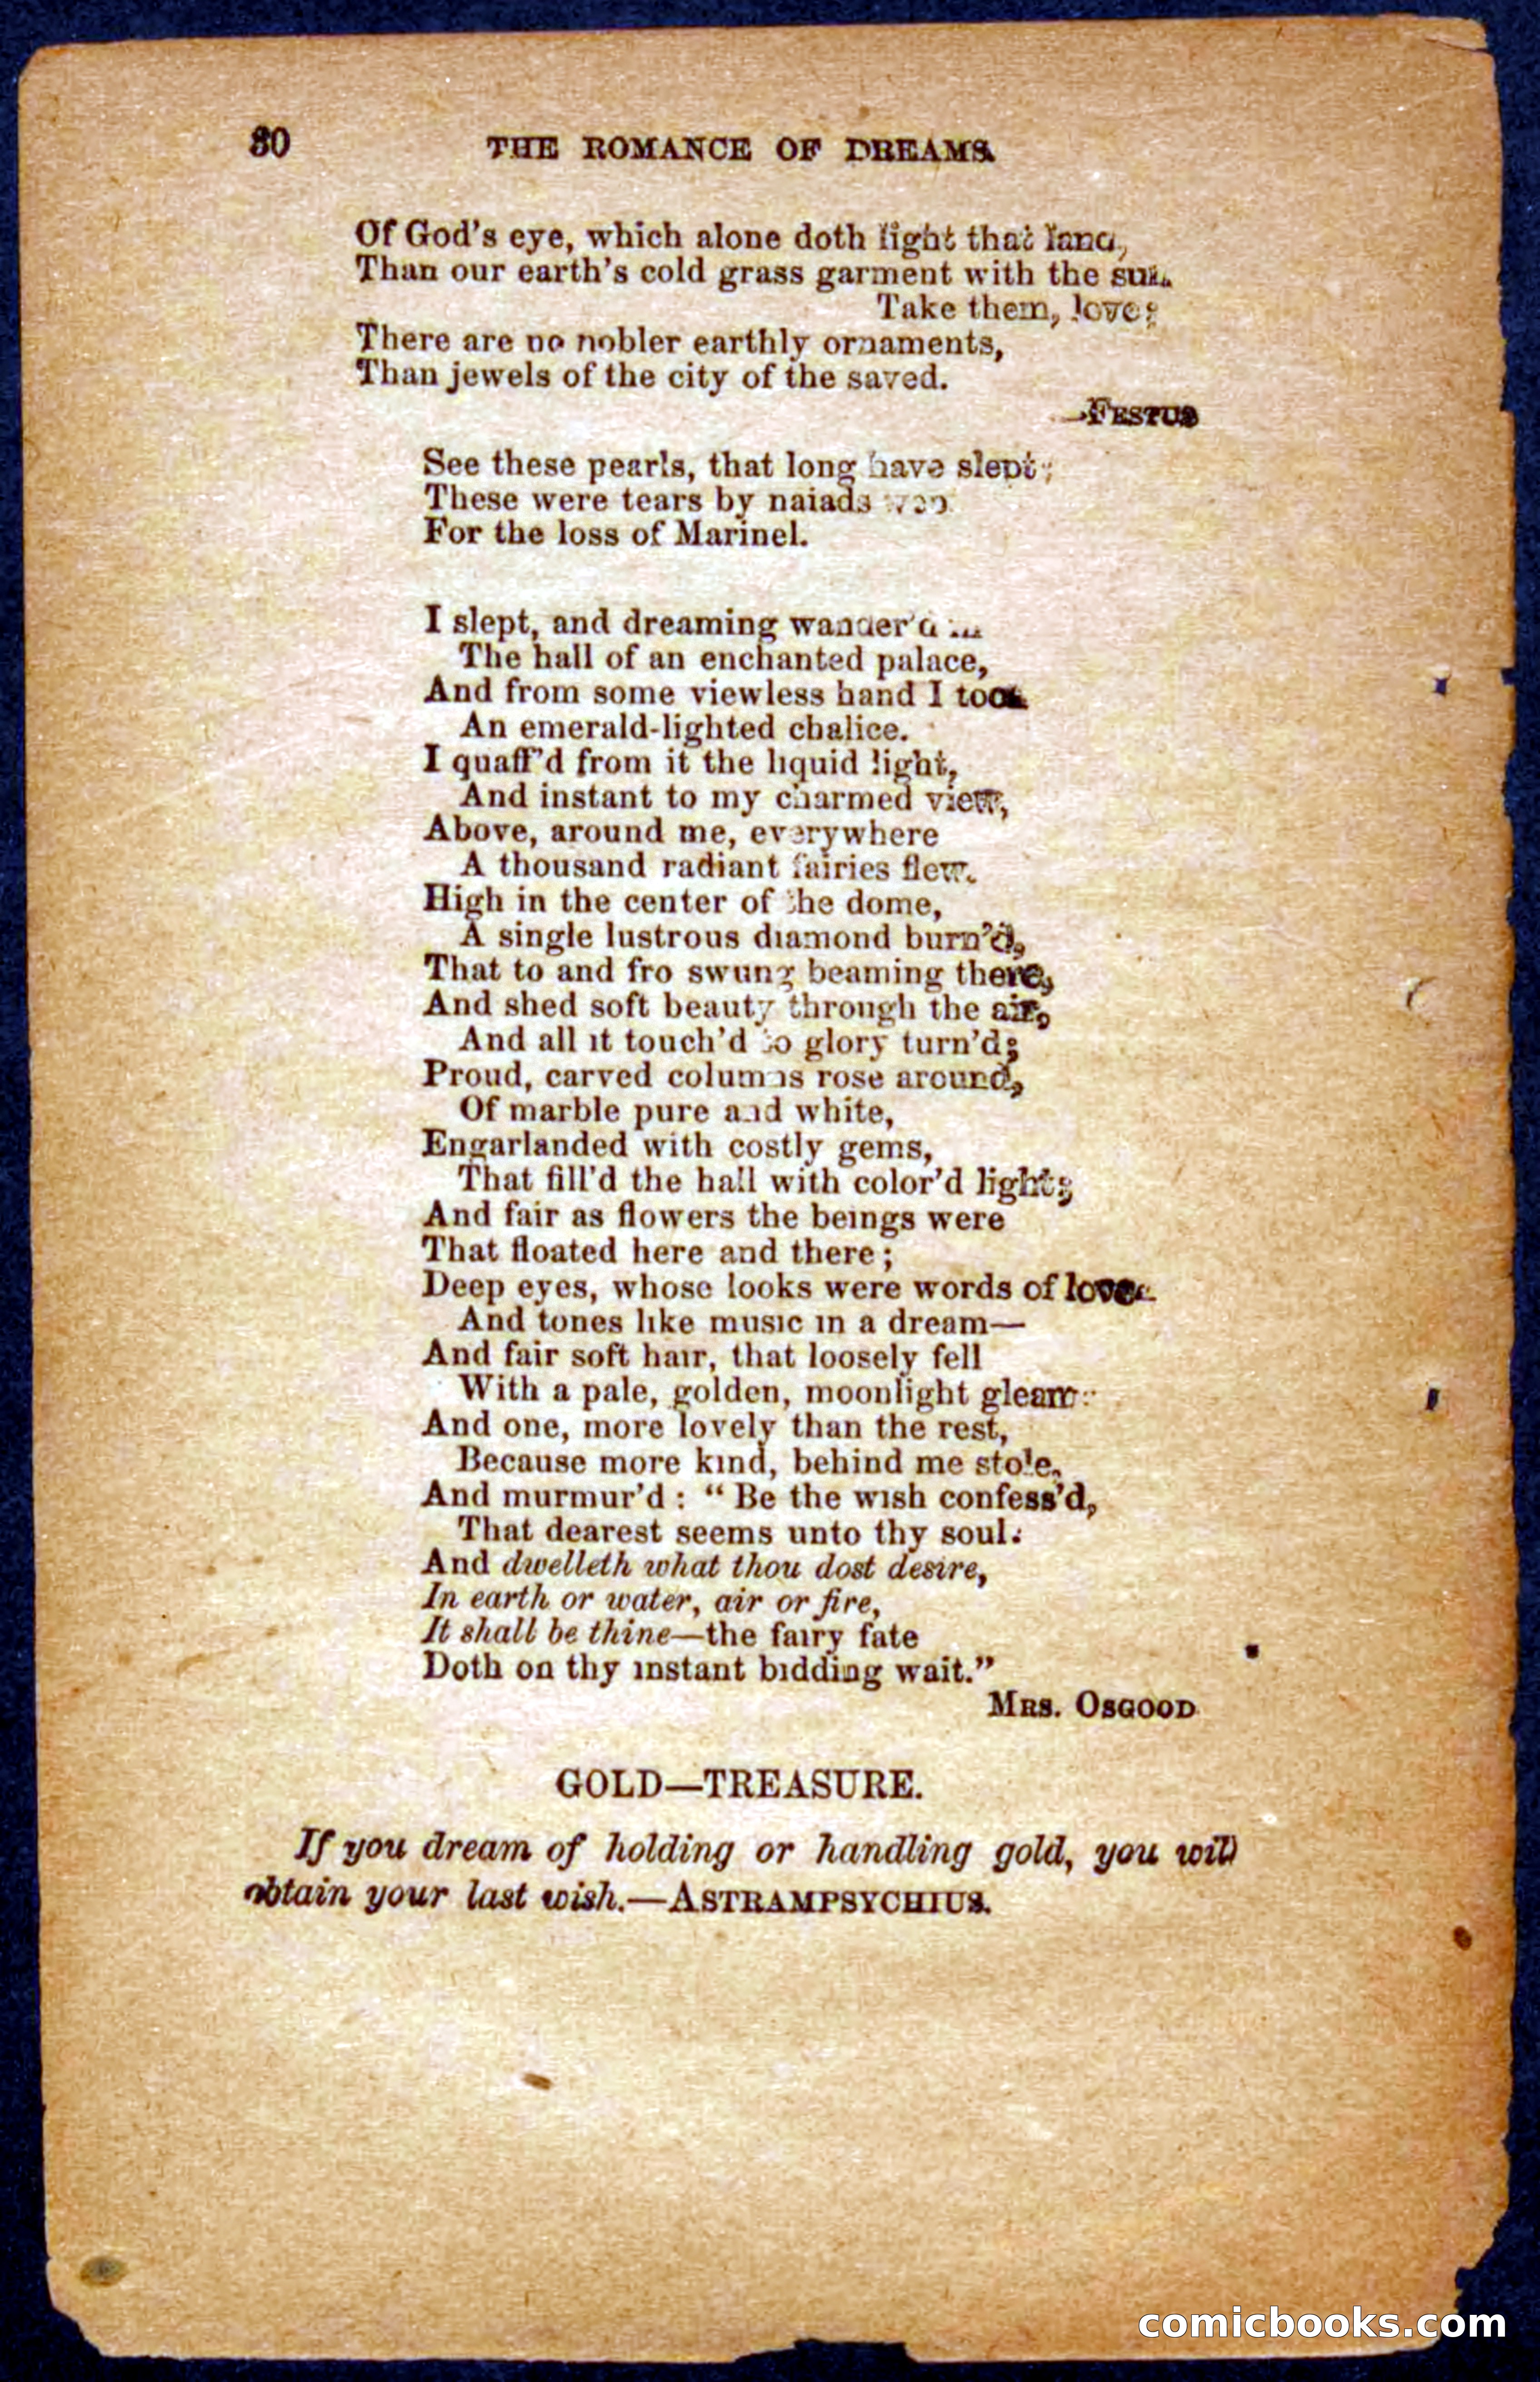 30 THE ROMANCE OF DREAMS.
Of God's eye, which alone doth light that land,
Than our earth's cold grass garment with the sun.
Take them, love;
There are no nobler earthly ornaments,
Than jewels of the city of the saved.
—FESTUS
See these pearls, that long have slept;
These were tears by naiads
For the loss of Marinel.
I slept, and dreaming wander'd in
The hall of an enchanted palace,
And from some viewless hand I took
An emerald-lighted chalice.
I quaff'd from it the liquid light,
And instant to my charmed view,
Above, around me, everywhere
A thousand radiant fairies flew.
High in the center of the dome,
A single lustrous diamond burn'd,
That to and fro swung beaming there,
And shed soft beauty through the air,
And all it touch'd to glory turn'd;
Proud, carved columns rose around,
Of marble pure and white,
Engarlanded with costly gems,
That fill'd the hall with color'd light;
And fair as flowers the beings were
That floated here and there;
Deep eyes, whose looks were words of love
And tones like music in a dream—
And fair soft hair, that loosely fell
With a pale, golden, moonlight gleam
And one, more lovely than the rest,
Because more kind, behind me stole,
And murmur'd: "Be the wish confess'd,
That dearest seems unto thy soul:
And dwelleth what thou dost desire,
In earth or water, air or fire,
It shall be thine—the fairy fate
Doth on thy instant bidding wait."
MRS. OSGOOD
GOLD—TREASURE.
If you dream of holding or handling gold, you will
obtain your last wish.—ASTRAMPSYCHIUS.
comicbooks.com